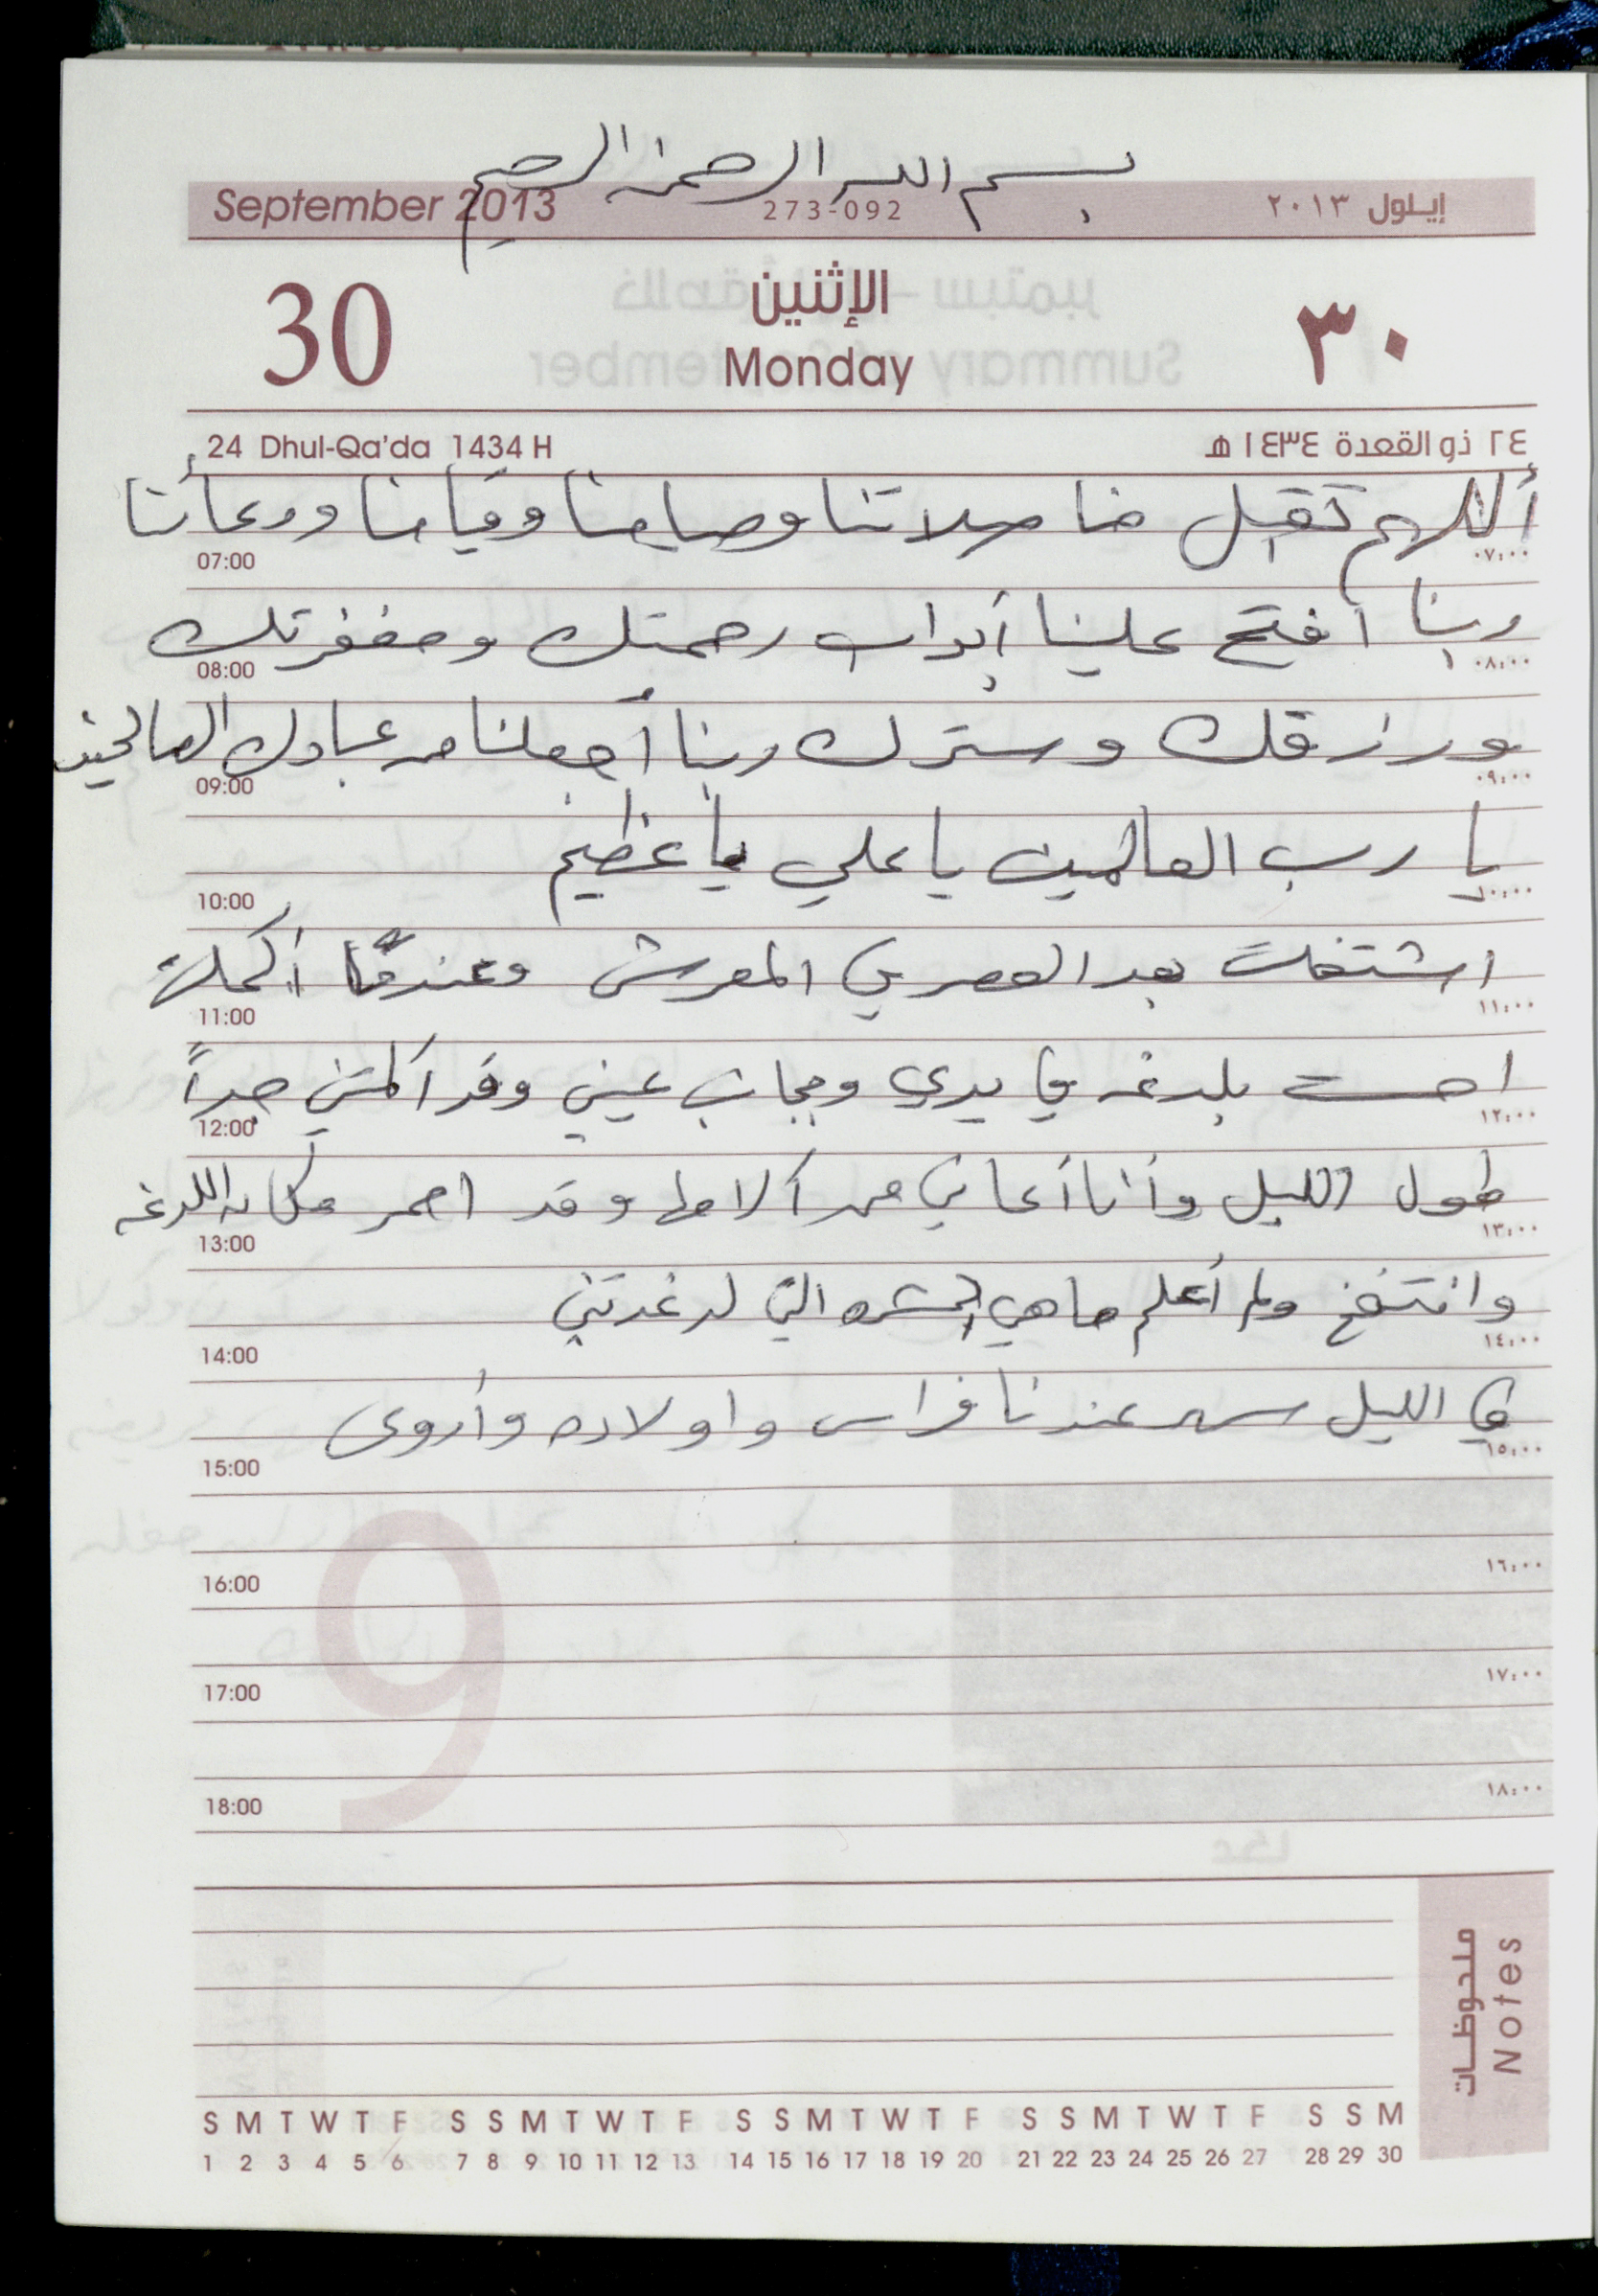 بسم الله الرحمن الرحيم
September 2013 273-092 إيلول ٢٠١٣
30 الإثنين ٣٠
Monday
24 Dhul-Qa'da 1434 H ٢٤ ذو القعدة ١٤٣٤ هـ
أللهم تقبل منا صلاتنا وصيامنا وقيامنا ودعائنا
07:00 ٠٧:٠٠
ربنا أفتح علينا أبواب رحمتك ومغفرتك
08:00 ٠٨:٠٠
ورزقك وسترك ربنا أجعلنا من عبادك الصالحين
09:00 ٠٩:٠٠
يا رب العالمين يا علي يا عظيم
10:00 ١٠:٠٠
اشتغلت بعد العصر في المعرش وعندما أكملت
11:00 ١١:٠٠
احست بلدغه في يدي وبجانب عيني وقد آلمتني جداً
12:00 ١٢:٠٠
طول الليل وأنا أعاني من آلامها وقد احمر مكان اللدغه
13:00 ١٣:٠٠
وانتفخ ولم أعلم ما هي الحشره التي لدغتني
14:00 ١٤:٠٠
في الليل سهر عندنا فراس واولاده وأروى
15:00 ١٥:٠٠
16:00 ١٦:٠٠
17:00 ١٧:٠٠
18:00 ١٨:٠٠
9
ملحوظات
Notes
S M T W T F S S M T W T F S S M T W T F S S M T W T F S S M
1 2 3 4 5 6 7 8 9 10 11 12 13 14 15 16 17 18 19 20 21 22 23 24 25 26 27 28 29 30